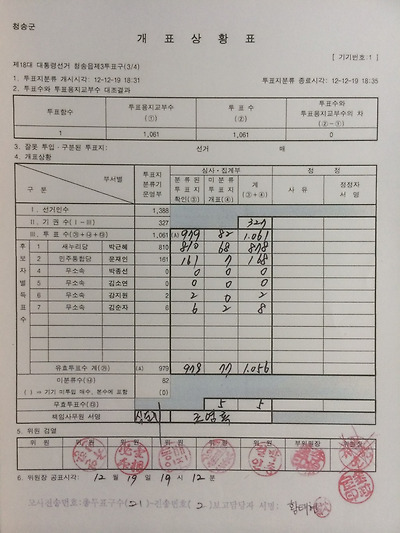 청송군
개 표 상 황 표
[ 기기번호: 1 ]
제18대 대통령선거 청송읍제3투표구(3/4)
1. 투표지분류 개시시각: 12-12-19 18:31 투표지분류 종료시각: 12-12-19 18:35
2. 투표수와 투표용지교부수 대조결과
투표함수 투표용지교부수 (①) 투 표 수 (②) 투표수와 투표용지교부수의 차 (②-①)
1 1,061 1,061 0
3. 잘못 투입·구분된 투표지: 선거 매
4. 개표상황
구 분 부서별 투표지 분류기 운영부 심사·집계부 정 정
분류된 투표지 확인(③) 미분류 투표지 개표(④) 계 (③+④) 사 유 정정자 서 명
Ⅰ. 선거인수 1,388
Ⅱ. 기 권 수 (Ⅰ-Ⅲ) 327 327
Ⅲ. 투 표 수 1,061 (A) 979 82 1.061
후보자별 득표수
1 새누리당 박근혜 810 810 68 878
2 민주통합당 문재인 161 161 7 168
4 무소속 박종선 0 0 0 0
5 무소속 김소연 0 0 0 0
6 무소속 강지원 2 2 0 2
7 무소속 김순자 6 6 2 8
유효투표수 계 (A) 979 979 77 1.056
미분류수 82
( ) = 기기 미투입 매수, 본수에 포함 (0)
무효투표수 5 5
책임사무원 서명
5. 위원 검열
위 원 위 원 위 원 위 원 위 원 위 원 부위원장 위원장
6. 위원장 공표시각: 12 월 19 일 19 시 12 분
모사전송번호:총투표구수(21)-전송번호( 2-)보고담당자 서명: